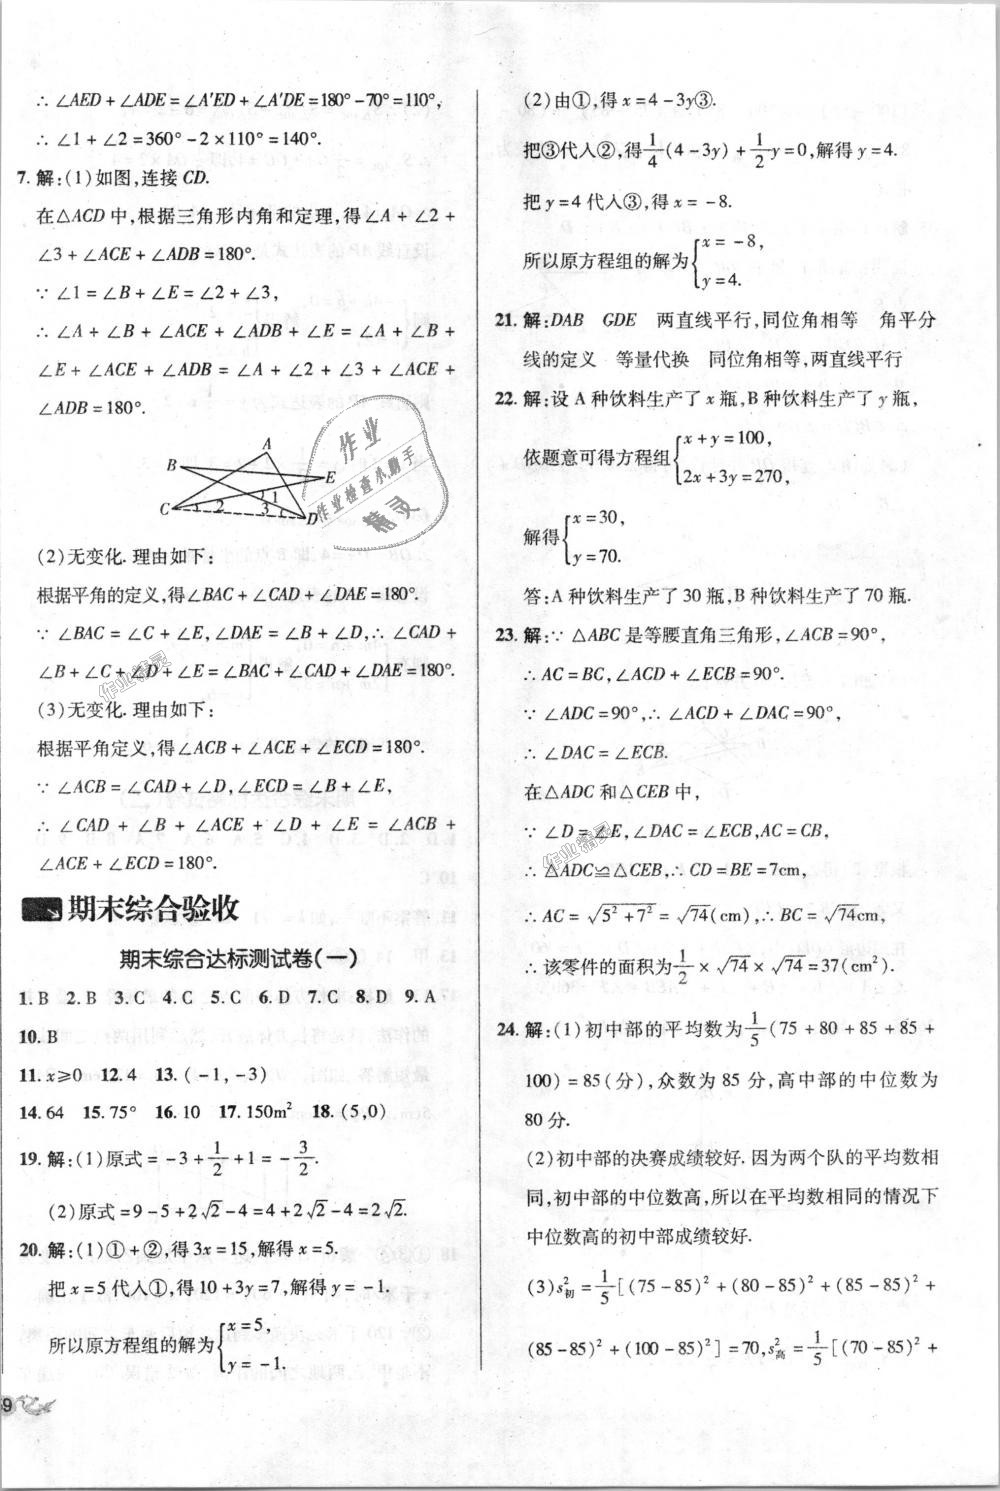 ∴ ∠AED + ∠ADE = ∠A′ED + ∠A′DE = 180° - 70° = 110°,
∴ ∠1 + ∠2 = 360° - 2 × 110° = 140°.
7. 解:(1)如图,连接 CD.
在△ACD 中,根据三角形内角和定理,得∠A + ∠2 +
∠3 + ∠ACE + ∠ADB = 180°.
∵ ∠1 = ∠B + ∠E = ∠2 + ∠3,
∴ ∠A + ∠B + ∠ACE + ∠ADB + ∠E = ∠A + ∠B +
∠E + ∠ACE + ∠ADB = ∠A + ∠2 + ∠3 + ∠ACE +
∠ADB = 180°.
A
B
E
C
D
1
2
3
(2)无变化. 理由如下:
根据平角的定义,得∠BAC + ∠CAD + ∠DAE = 180°.
∵ ∠BAC = ∠C + ∠E, ∠DAE = ∠B + ∠D, ∴ ∠CAD +
∠B + ∠C + ∠D + ∠E = ∠BAC + ∠CAD + ∠DAE = 180°.
(3)无变化. 理由如下:
根据平角定义,得∠ACB + ∠ACE + ∠ECD = 180°.
∵ ∠ACB = ∠CAD + ∠D, ∠ECD = ∠B + ∠E,
∴ ∠CAD + ∠B + ∠ACE + ∠D + ∠E = ∠ACB +
∠ACE + ∠ECD = 180°.
期末综合验收
期末综合达标测试卷(一)
1. B 2. B 3. C 4. C 5. C 6. D 7. C 8. D 9. A
10. B
11. x≥0 12. 4 13. (-1, -3)
14. 64 15. 75° 16. 10 17. 150m² 18. (5,0)
19. 解:(1)原式 = -3 + 1/2 + 1 = -3/2.
(2)原式 = 9 - 5 + 2√2 - 4 = 4 + 2√2 - 4 = 2√2.
20. 解:(1)① + ②,得 3x = 15,解得 x = 5.
把 x = 5 代人①,得 10 + 3y = 7,解得 y = -1.
所以原方程组的解为{x = 5, y = -1.
(2)由①,得 x = 4 - 3y③.
把③代人②,得 1/4(4 - 3y) + 1/2 y = 0,解得 y = 4.
把 y = 4 代人③,得 x = -8.
所以原方程组的解为{x = -8, y = 4.
21. 解:DAB GDE 两直线平行,同位角相等 角平分
线的定义 等量代换 同位角相等,两直线平行
22. 解:设 A 种饮料生产了 x 瓶,B 种饮料生产了 y 瓶,
依题意可得方程组{x + y = 100, 2x + 3y = 270,
解得{x = 30, y = 70.
答:A 种饮料生产了 30 瓶,B 种饮料生产了 70 瓶.
23. 解:∵ △ABC 是等腰直角三角形, ∠ACB = 90°,
∴ AC = BC, ∠ACD + ∠ECB = 90°.
∵ ∠ADC = 90°, ∴ ∠ACD + ∠DAC = 90°,
∴ ∠DAC = ∠ECB.
在△ADC 和△CEB 中,
∵ ∠D = ∠E, ∠DAC = ∠ECB, AC = CB,
∴ △ADC≌△CEB, ∴ CD = BE = 7cm,
∴ AC = √(5² + 7²) = √74(cm), ∴ BC = √74cm,
∴ 该零件的面积为 1/2 × √74 × √74 = 37(cm²).
24. 解:(1)初中部的平均数为 1/5(75 + 80 + 85 + 85 +
100) = 85(分),众数为 85 分,高中部的中位数为
80 分.
(2)初中部的决赛成绩较好. 因为两个队的平均数相
同,初中部的中位数高,所以在平均数相同的情况下
中位数高的初中部成绩较好.
(3)s²初 = 1/5[(75 - 85)² + (80 - 85)² + (85 - 85)² +
(85 - 85)² + (100 - 85)²] = 70, s²高 = 1/5[(70 - 85)² +
作业
作业检查小助手
精灵
作业精灵
作业精灵